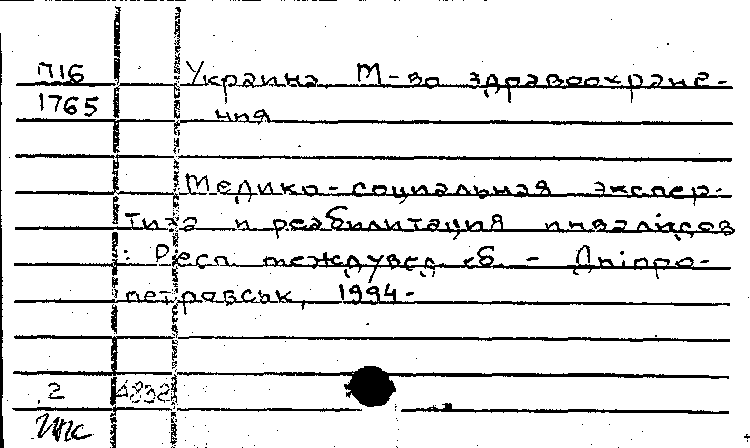 П16 Украина. М-во здравоохране-
1765 ния
Медико-социальная экспер-
тиза и реабилитация инвалидов
: Респ. междувед. сб. - Дніпро-
петровськ, 1994-
2 4832